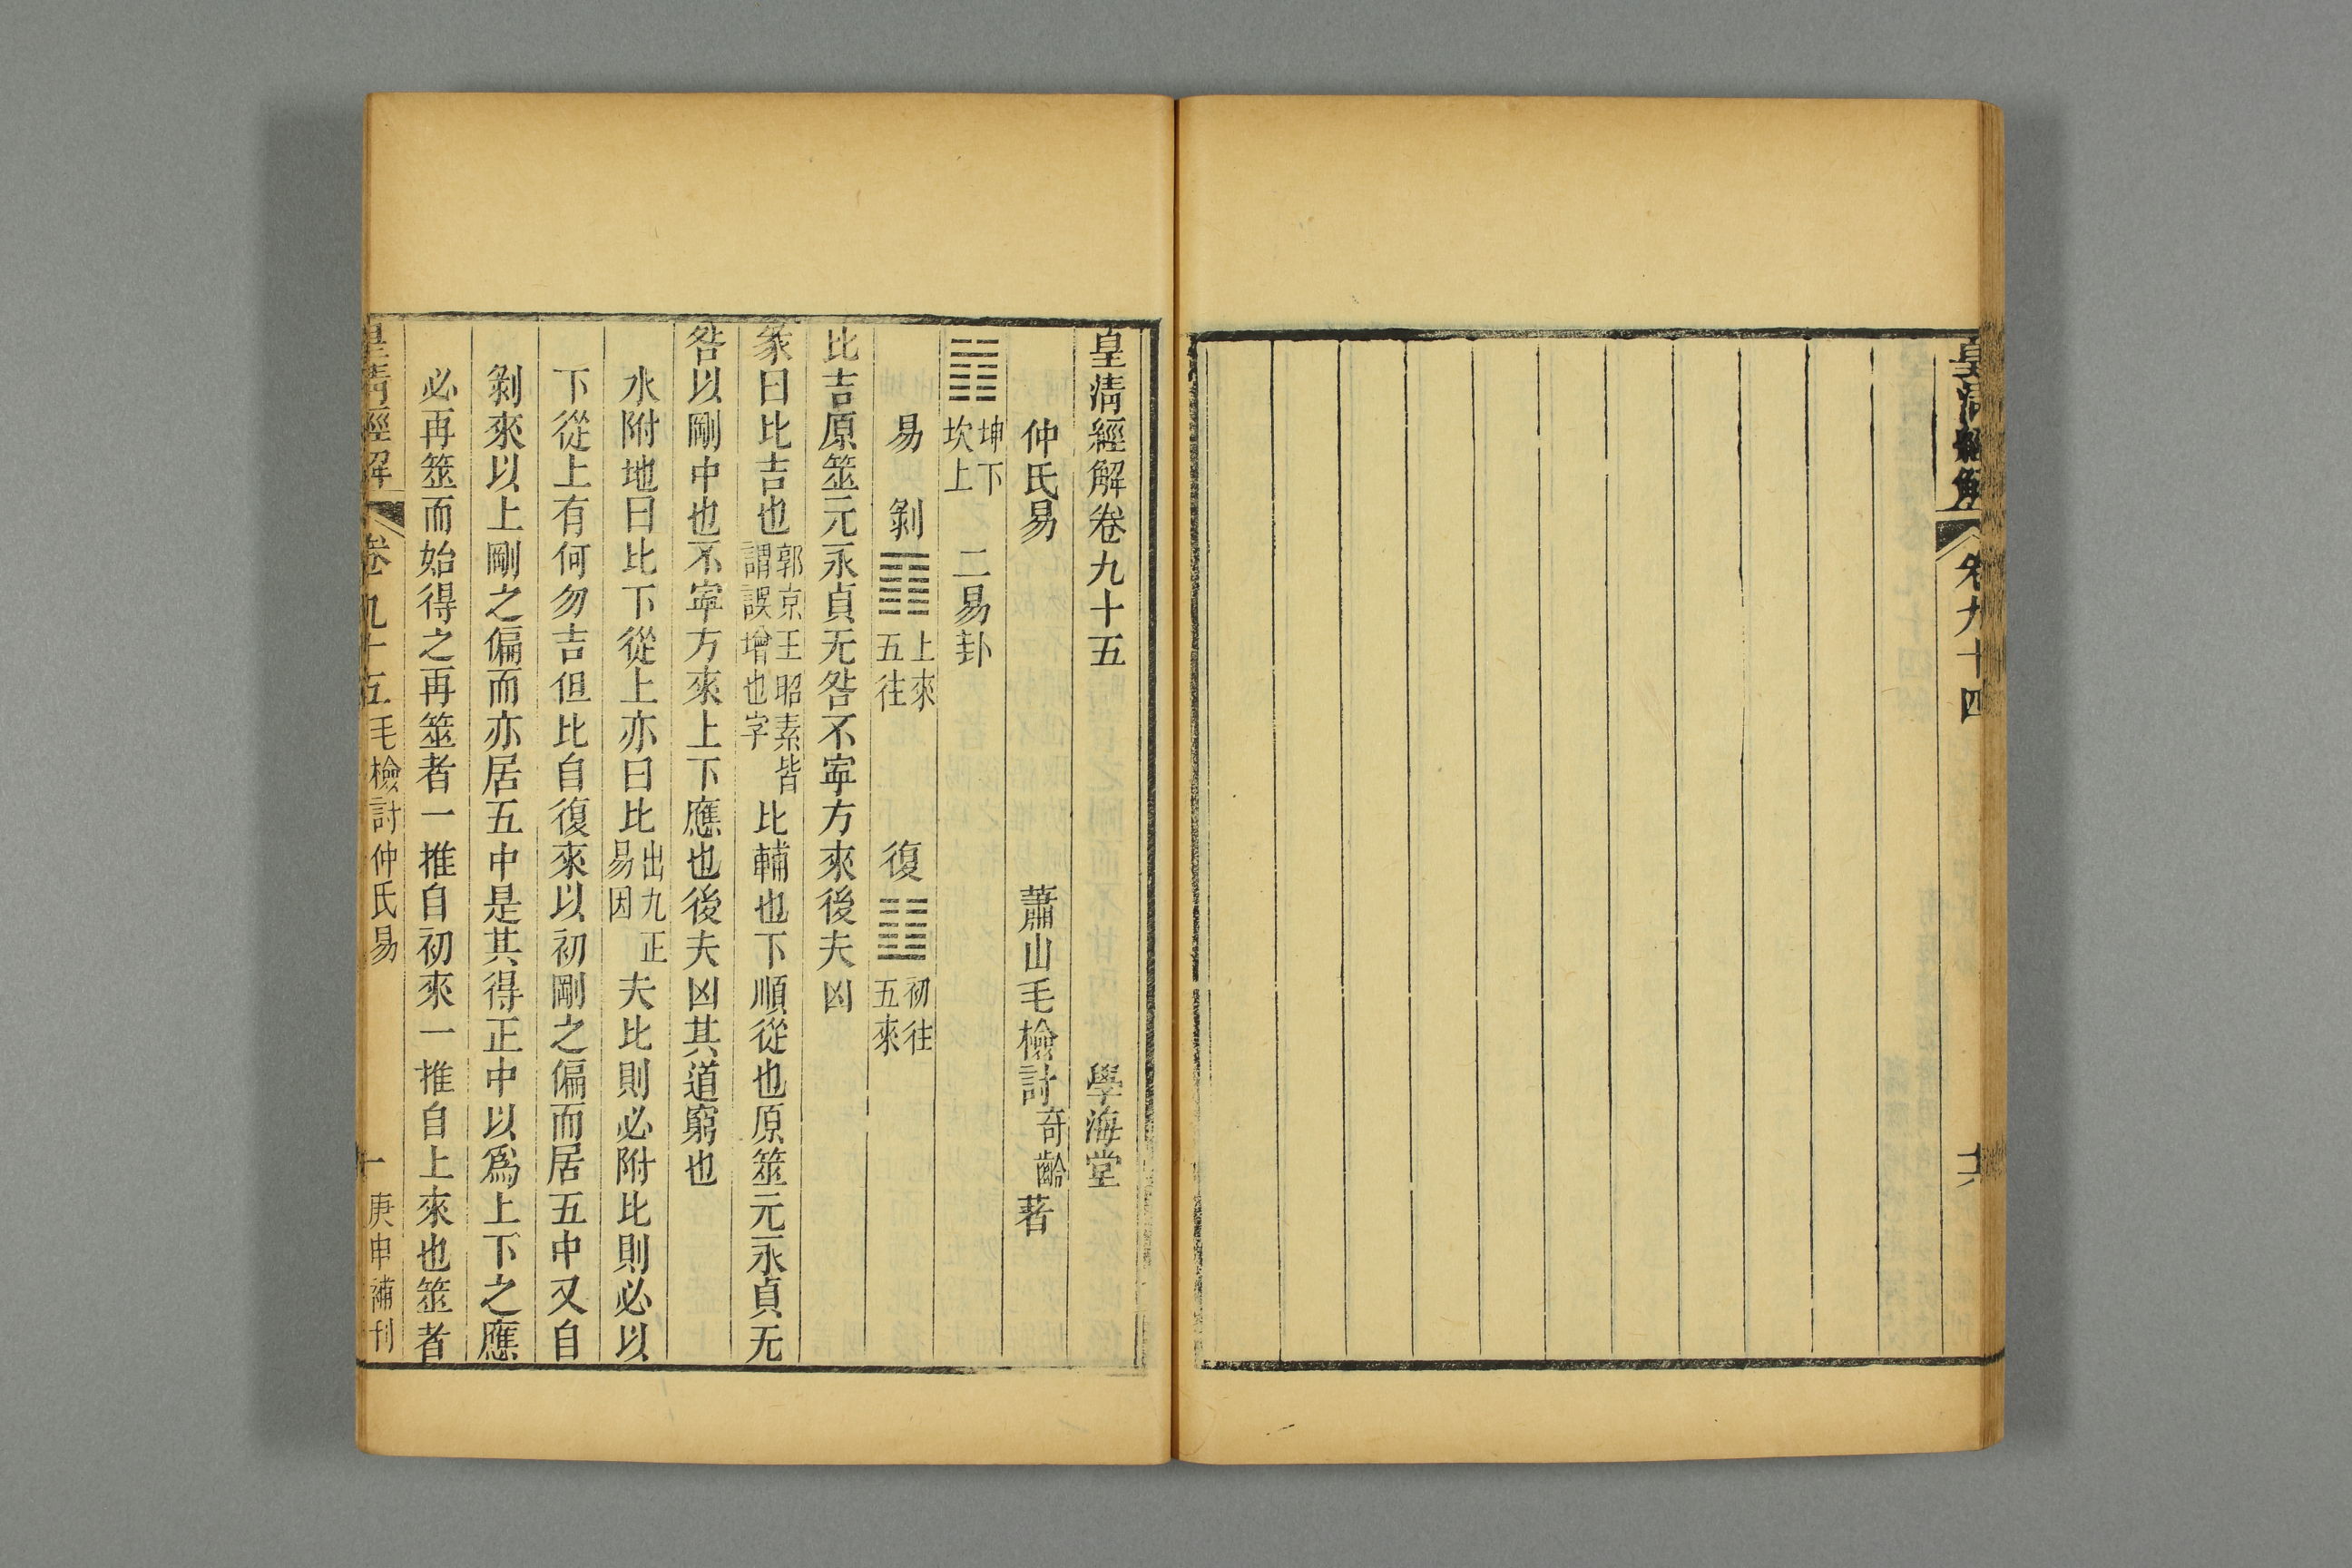 皇清經解
卷九十四
皇清經解卷九十五
學海堂
仲氏易
蕭山毛檢討奇齡著
坤下
坎上
二易卦
易
剝
上來
五往
復
初往
五來
比吉原筮元永貞无咎不寧方來後夫凶
彖曰比吉也郭京王昭素皆謂誤增也字比輔也下順從也原筮元永貞无
咎以剛中也不寧方來上下應也後夫凶其道窮也
水附地曰比下從上亦曰比出九正易因夫比則必附比則必以
下從上有何勿吉但比自復來以初剛之偏而居五中又自
剝來以上剛之偏而亦居五中是其得正中以爲上下之應
必再筮而始得之再筮者一推自初來一推自上來也筮者
皇清經解
卷九十五
毛檢討仲氏易
一
庚申補刊